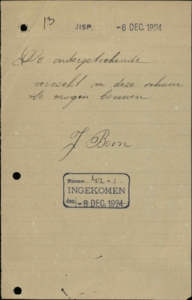 13
JISP. -6 DEC. 1924
De ondergeteekende
verzoekt om deze schuur
te mogen bouwen
J Boon
Nummer 402-1
INGEKOMEN
den -8 DEC. 1924